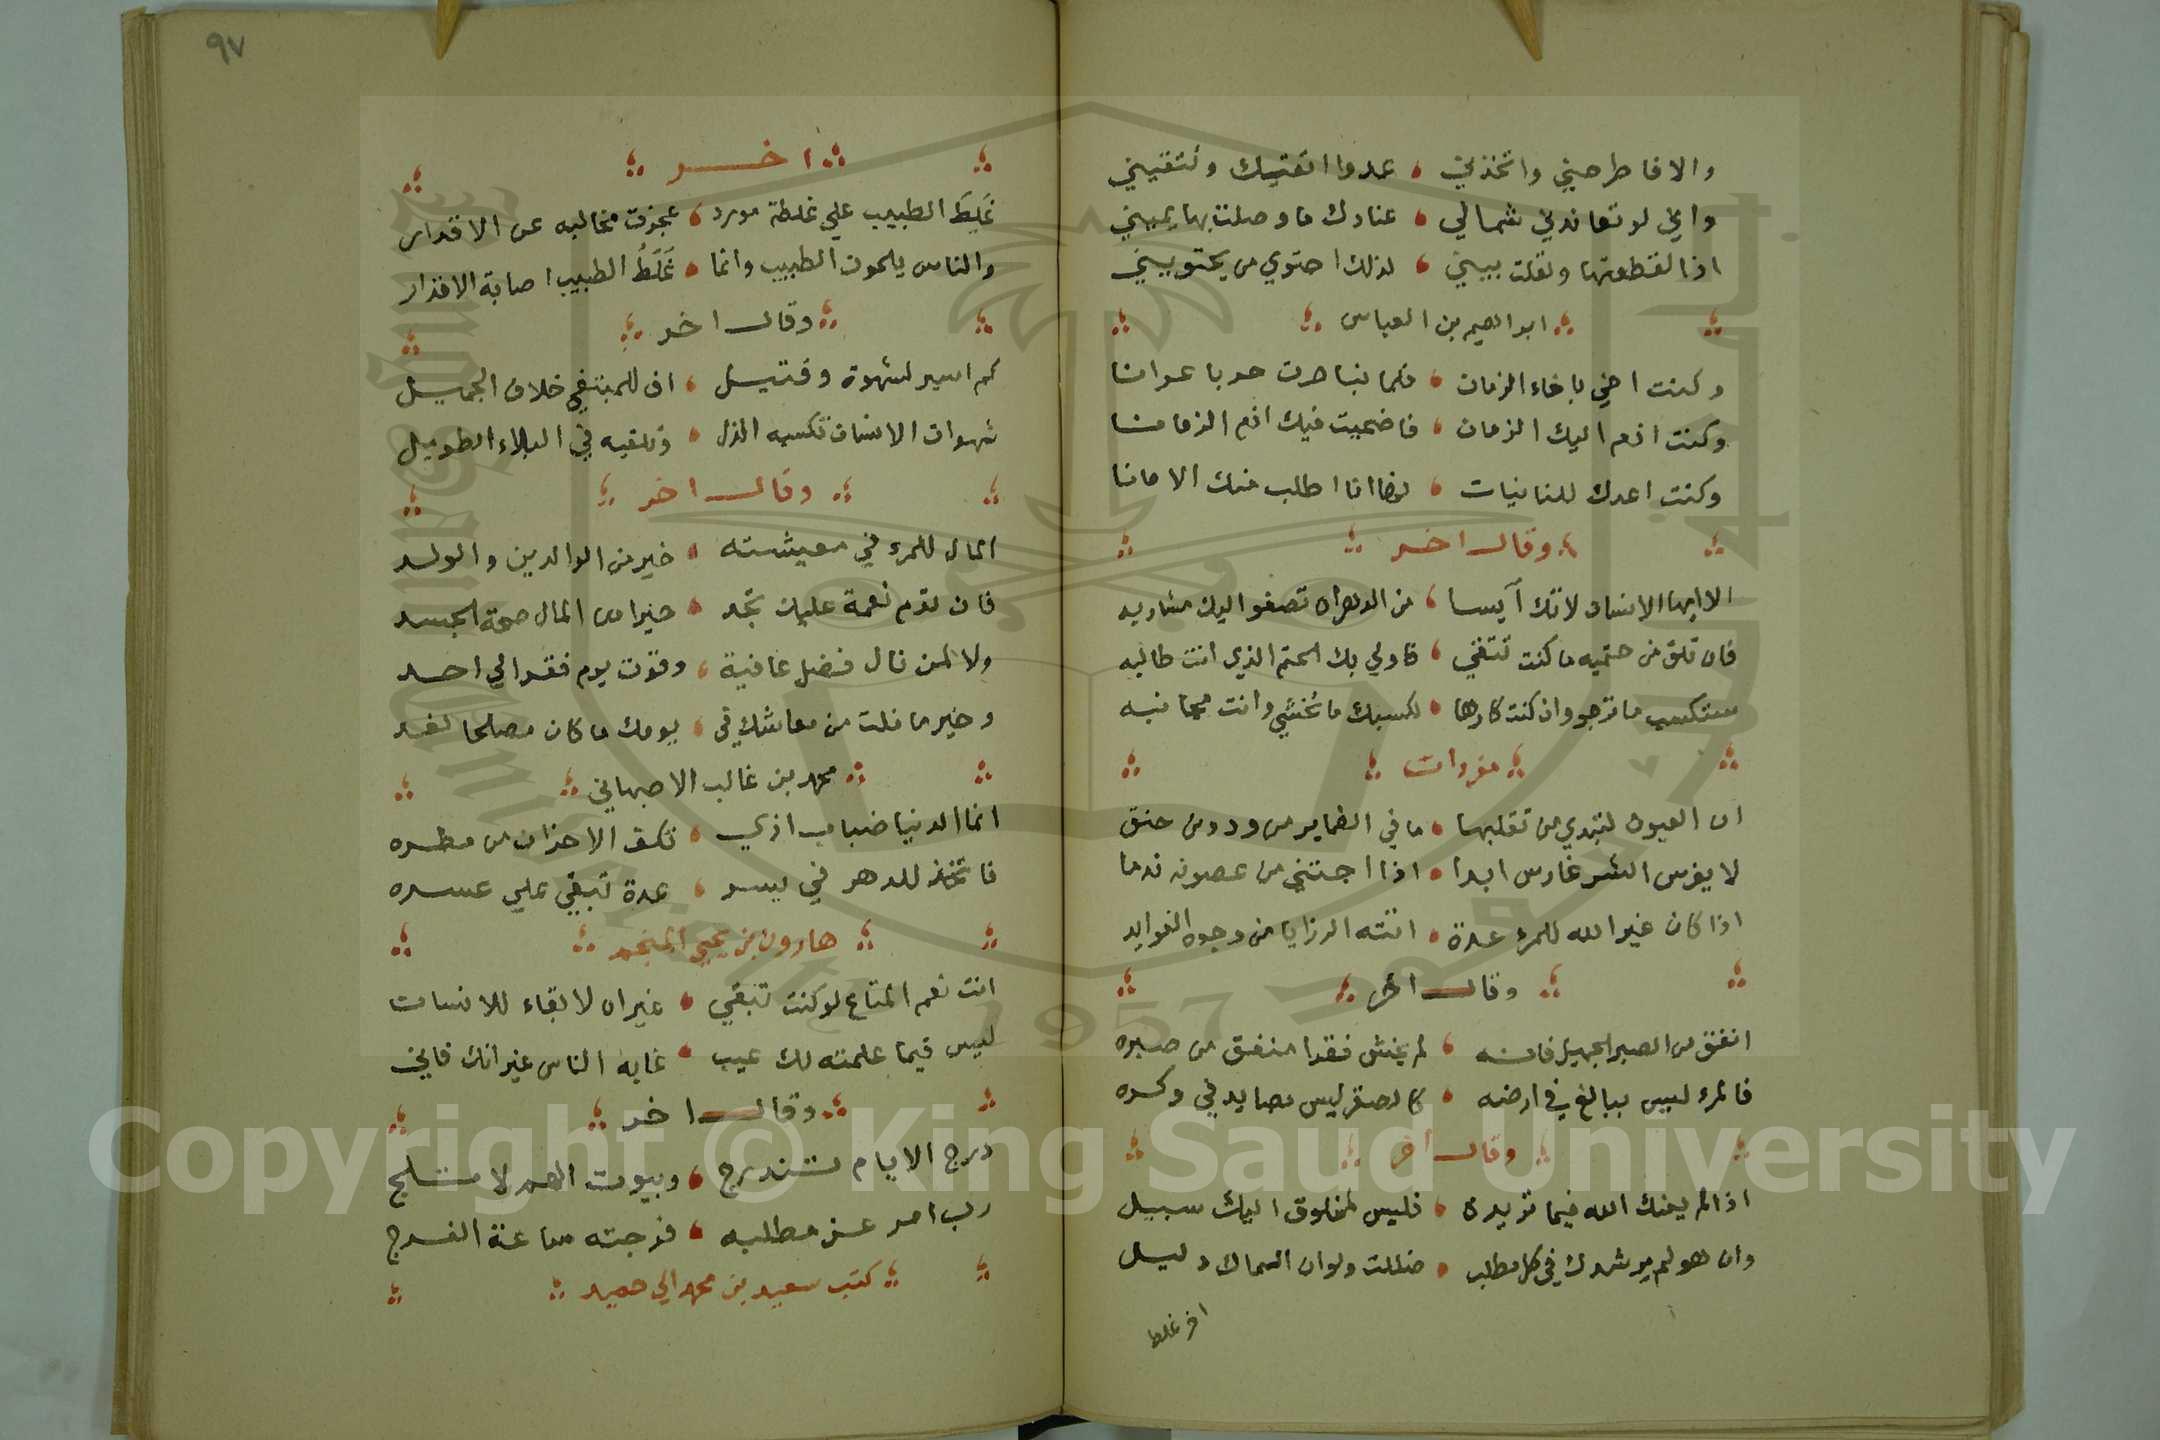 والا فاطرحيني واتخذيني ، عدوا اتقيك وتتقيني
واني لو تعاندني شمالي ، عنادك ما وصلت بها يميني
اذا لقطعتها ولقلت بيني ، لذلك اجتوي من يجتويني
ابراهيم بن العباس
وكنت اخي باخاء الزمان ، فلما نبا صرت حربا عوانا
وكنت اذم اليك الزمان ، فاضحيت فيك اذم الزمانا
وكنت اعدك للنايبات ، فها انا اطلب منك الامانا
وقال اخر
الا ايها الانسان لا تك آيسا ، من الدهر ان تصفو اليك مشاربه
فان تلق من حتميه ما كنت تتقي ، فاولي بك الحتم الذي انت طالبه
ستكسب ما ترجو وان كنت كارها ، لكسبك ما تخشي وانت مجانبه
مفردات
ان العيون لتبدي من تقلبها ، ما في الضماير من ود ومن حنق
لا يغرس الشر غارس ابدا ، اذا اجتني من غصونه ندما
اذا كان غير الله للمرء عدة ، اتته الرزايا من وجوه الفوايد
وقال اخر
انفق من الصبر الجميل فانه ، لم يخش فقدا منفق من صبره
فالمرء ليس ببالغ في ارضه ، كالصقر ليس بصايد في وكره
وقال اخر
اذا لم يعنك الله فيما تريده ، فليس لمخلوق اليك سبيل
وان هو لم يرشدك في كل مطلب ، ضللت ولو ان السماك دليل
اخر غلط
٩٧
اخر
غَلِطَ الطبيب علي غلطة مورد ، عجزت مخالبه عن الاقدار
والناس يلحون الطبيب وانما ، غَلَطُ الطبيب اصابة الاقدار
وقال اخر
كم اسير لشهوة وقتيل ، اف للمبتغي خلاف الجميل
شهوات الانسان تكسبه الذل ، وتلقيه في البلاء الطويل
وقال اخر
المال للمرء في معيشته ، خير من الوالدين والولد
فان تدم نعمة عليك تجد ، خيرا من المال صحة الجسد
ولا لمن نال فضل عافية ، وقوت يوم فقد الي احد
وخير ما نلت من معاشك في ، يومك ما كان مصلحا لغد
محمد بن غالب الاصبهاني
انما الدنيا ضباب اذي ، تكف الاحزان من مطره
فاتخذ للدهر في يسر ، عدة تبقي علي عسره
هارون بن يحيي المنجم
انت نعم المتاع لو كنت تبقي ، غير ان لا بقاء للانسان
ليس فيما علمته لك عيب ، عابه الناس غير انك فاني
وقال اخر
درج الايام تندرج ، وبيوت الهم لا تلج
رب امر عز مطلبه ، فرجته ساعة الفرج
كتب سعيد بن محمد الي حميد
Copyright © King Saud University
1957